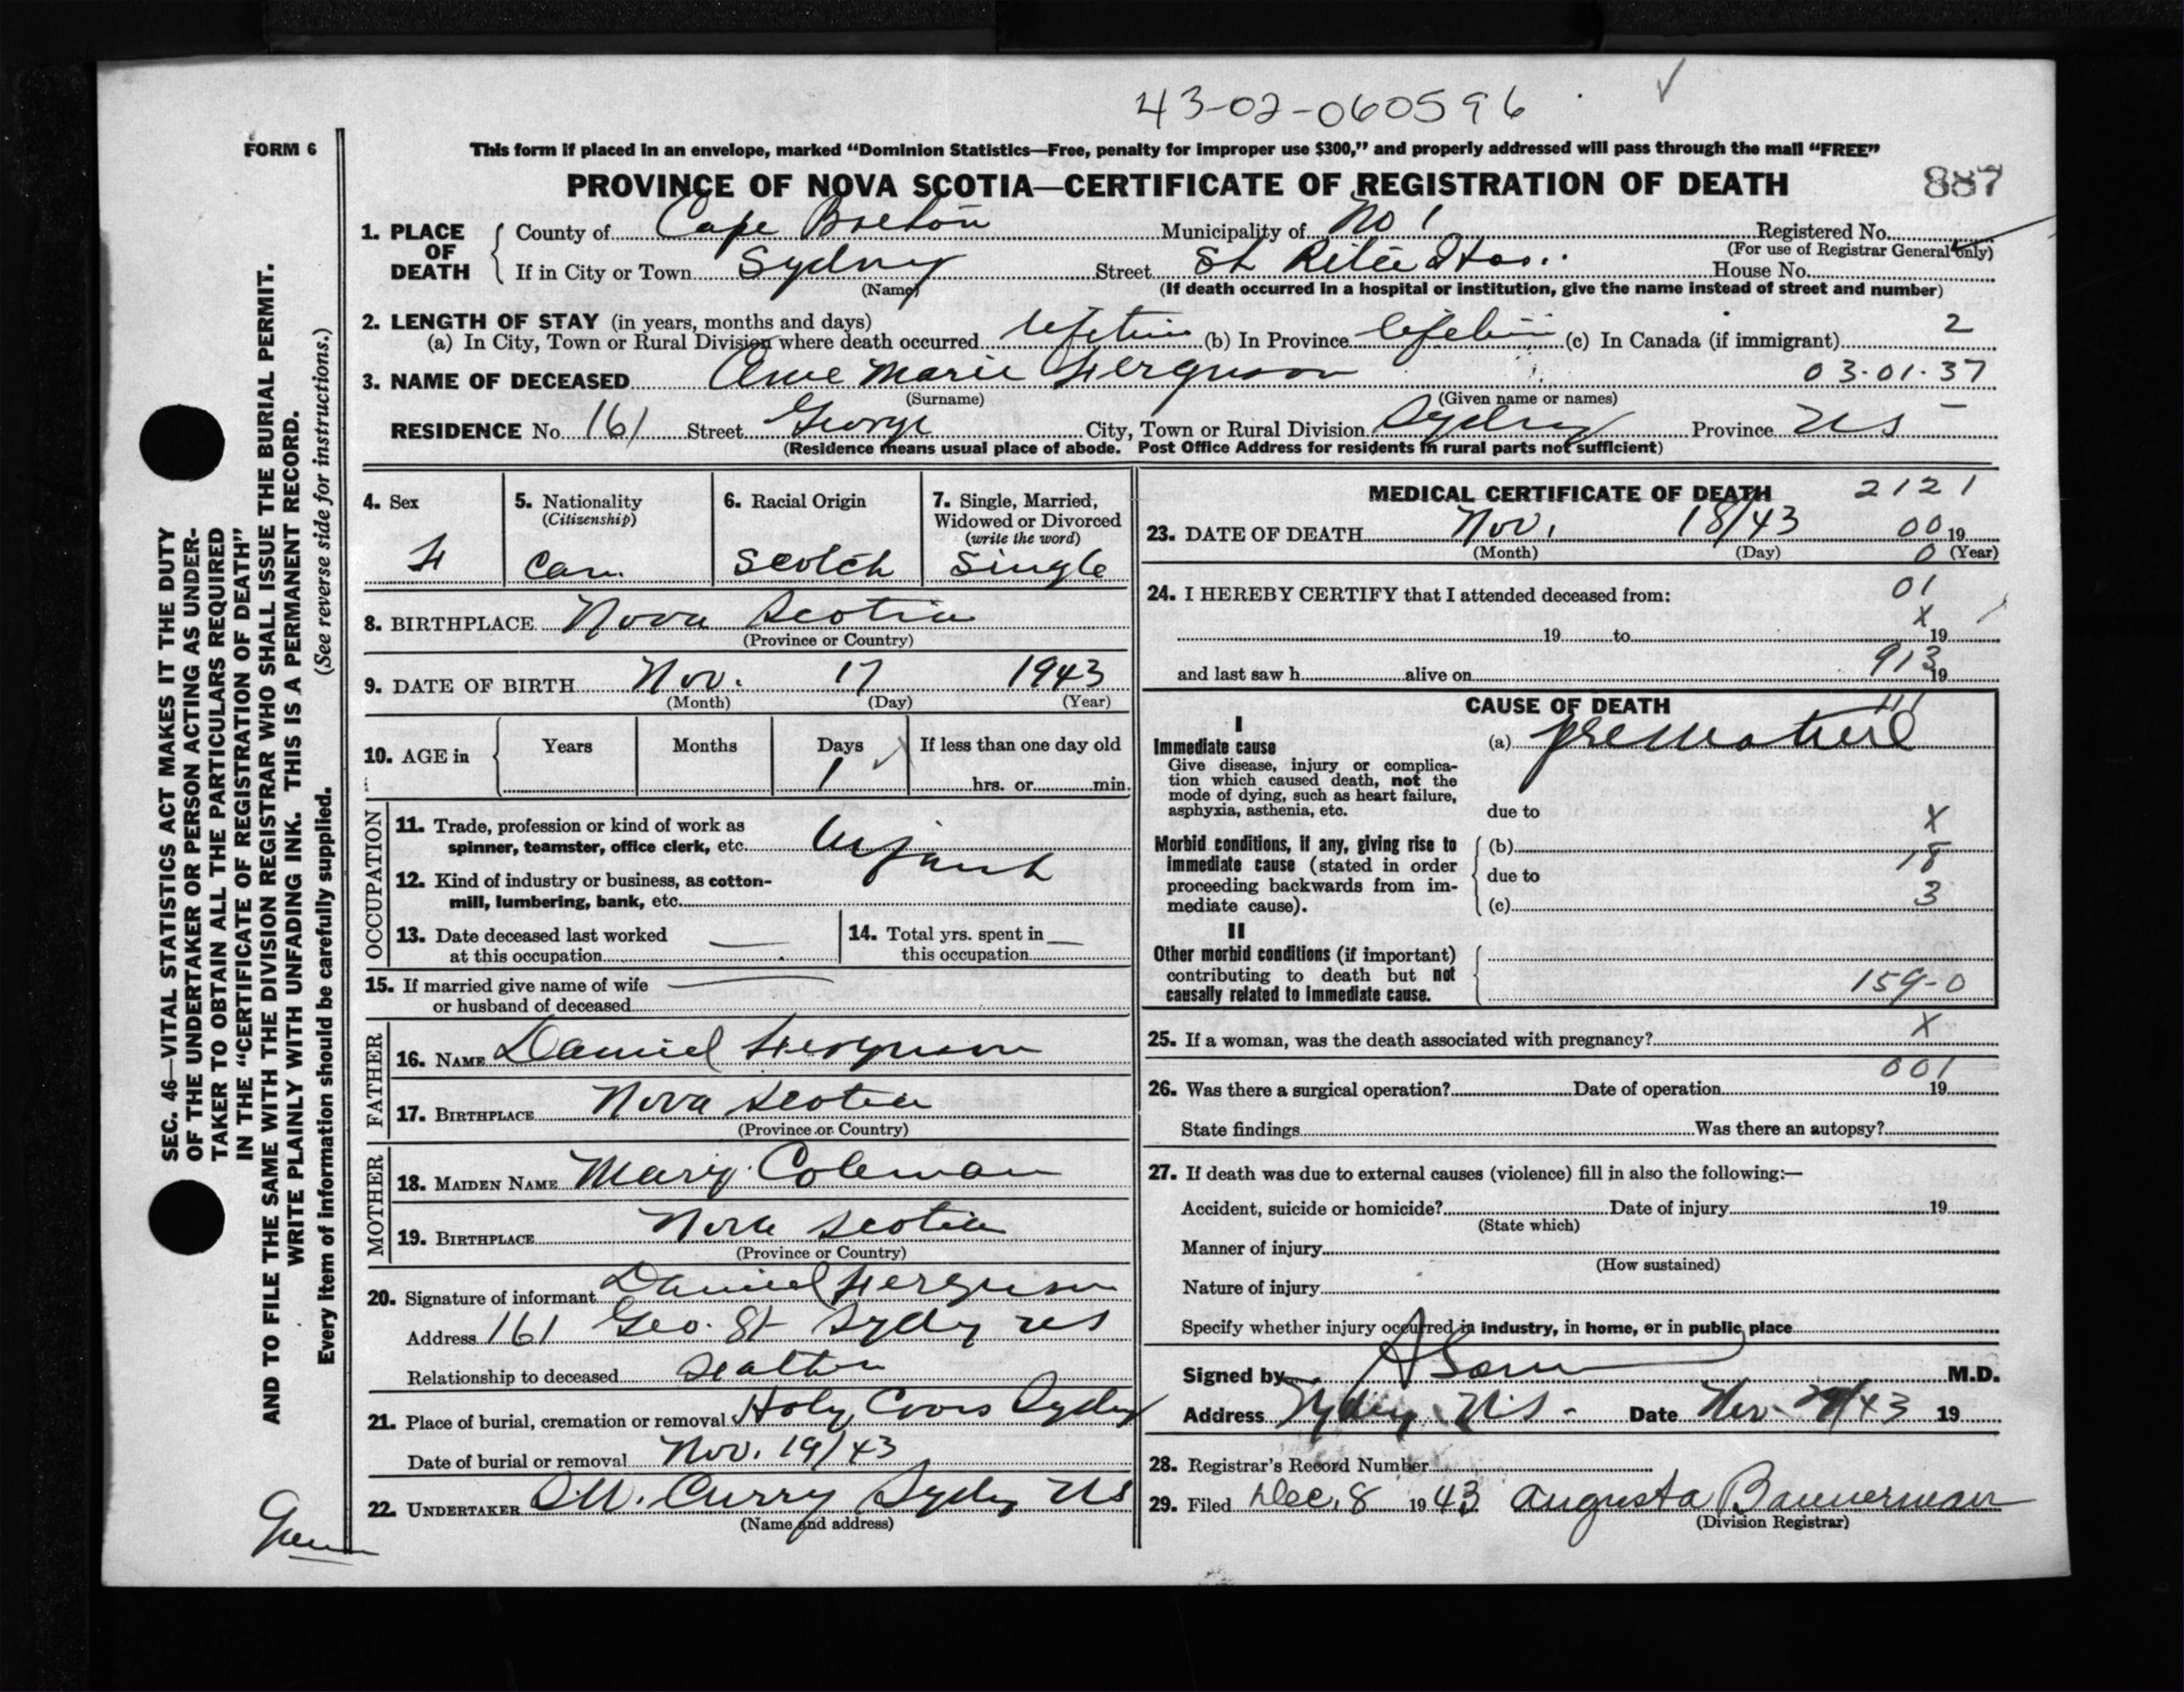 43-02-060596
FORM 6
This form if placed in an envelope, marked “Dominion Statistics—Free, penalty for improper use $300,” and properly addressed will pass through the mail “FREE”
PROVINCE OF NOVA SCOTIA—CERTIFICATE OF REGISTRATION OF DEATH 887
1. PLACE OF DEATH
County of Cape Breton Municipality of No 1 Registered No.
(For use of Registrar General only)
If in City or Town Sydney Street St Rita Hos. House No.
(Name) (If death occurred in a hospital or institution, give the name instead of street and number)
2. LENGTH OF STAY (in years, months and days) 2
(a) In City, Town or Rural Division where death occurred lifetime (b) In Province lifetime (c) In Canada (if immigrant)
3. NAME OF DECEASED Anne Marie Ferguson 03·01·37
(Surname) (Given name or names)
RESIDENCE No. 161 Street George City, Town or Rural Division Sydney Province NS
(Residence means usual place of abode. Post Office Address for residents in rural parts not sufficient)
4. Sex F
5. Nationality
(Citizenship)
Can.
6. Racial Origin
Scotch
7. Single, Married,
Widowed or Divorced
(write the word)
Single
8. BIRTHPLACE Nova Scotia
(Province or Country)
9. DATE OF BIRTH Nov. 17 1943
(Month) (Day) (Year)
10. AGE in Years Months Days If less than one day old
1 hrs. or min.
OCCUPATION
11. Trade, profession or kind of work as
spinner, teamster, office clerk, etc. Infant
12. Kind of industry or business, as cotton-
mill, lumbering, bank, etc.
13. Date deceased last worked
at this occupation
14. Total yrs. spent in
this occupation
15. If married give name of wife
or husband of deceased
FATHER
16. NAME Daniel Ferguson
17. BIRTHPLACE Nova Scotia
(Province or Country)
MOTHER
18. MAIDEN NAME Mary Coleman
19. BIRTHPLACE Nova Scotia
(Province or Country)
20. Signature of informant Daniel Ferguson
Address 161 Geo. St Sydney NS
Relationship to deceased
21. Place of burial, cremation or removal Holy Cross Sydney
Date of burial or removal Nov. 19/43
22. UNDERTAKER Curry Sydney NS
(Name and address)
MEDICAL CERTIFICATE OF DEATH 2121
23. DATE OF DEATH Nov. 18/43 00 19
(Month) (Day) 0 (Year)
24. I HEREBY CERTIFY that I attended deceased from: 01
X
19 to 19
913
and last saw h alive on 19
CAUSE OF DEATH 111
I
Immediate cause (a) premature
Give disease, injury or complica-
tion which caused death, not the
mode of dying, such as heart failure,
asphyxia, asthenia, etc. due to X
Morbid conditions, if any, giving rise to (b)
immediate cause (stated in order 18
proceeding backwards from im- due to 3
mediate cause). (c)
II
Other morbid conditions (if important)
contributing to death but not
causally related to immediate cause. 159-0
25. If a woman, was the death associated with pregnancy? X
001
26. Was there a surgical operation? Date of operation 19
State findings Was there an autopsy?
27. If death was due to external causes (violence) fill in also the following:—
Accident, suicide or homicide? Date of injury 19
(State which)
Manner of injury
(How sustained)
Nature of injury
Specify whether injury occurred in industry, in home, or in public place
Signed by M.D.
Address Sydney N.S. Date Nov. /43 19
28. Registrar's Record Number
29. Filed Dec. 8 1943 Augusta Bannerman
(Division Registrar)
SEC. 46—VITAL STATISTICS ACT MAKES IT THE DUTY
OF THE UNDERTAKER OR PERSON ACTING AS UNDER-
TAKER TO OBTAIN ALL THE PARTICULARS REQUIRED
IN THE “CERTIFICATE OF REGISTRATION OF DEATH”
AND TO FILE THE SAME WITH THE DIVISION REGISTRAR WHO SHALL ISSUE THE BURIAL PERMIT.
WRITE PLAINLY WITH UNFADING INK. THIS IS A PERMANENT RECORD.
Every item of information should be carefully supplied. (See reverse side for instructions.)